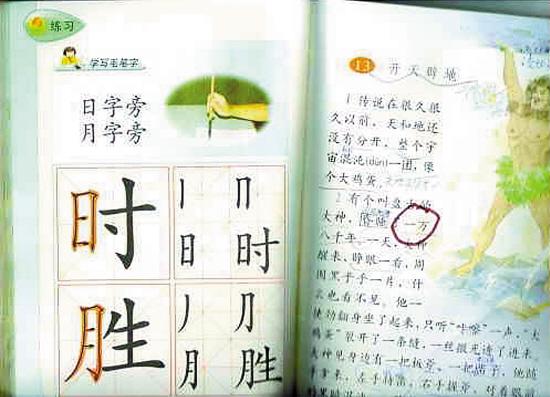 练习
学写毛笔字
日字旁
月字旁
时
丨 冂
日 时
胜
丿 刀
月 胜
13 开天辟地
1 传说在很久很
久以前，天和地还
没有分开，整个宇
宙混沌(dùn)一团，像
个大鸡蛋。
2 有个叫盘古的
大神，昏睡了一万
八千年。一天，大神
醒来，睁眼一看，周
围黑乎乎一片，什
么也看不见。他一
使劲翻身坐了起来，只听“咔嚓”一声，“大
鸡蛋”裂开了一条缝，一丝微光透了进来。
大神见身边有一把板斧、一把凿子，他随
手拿来，左手持凿，右手握斧，对着眼前